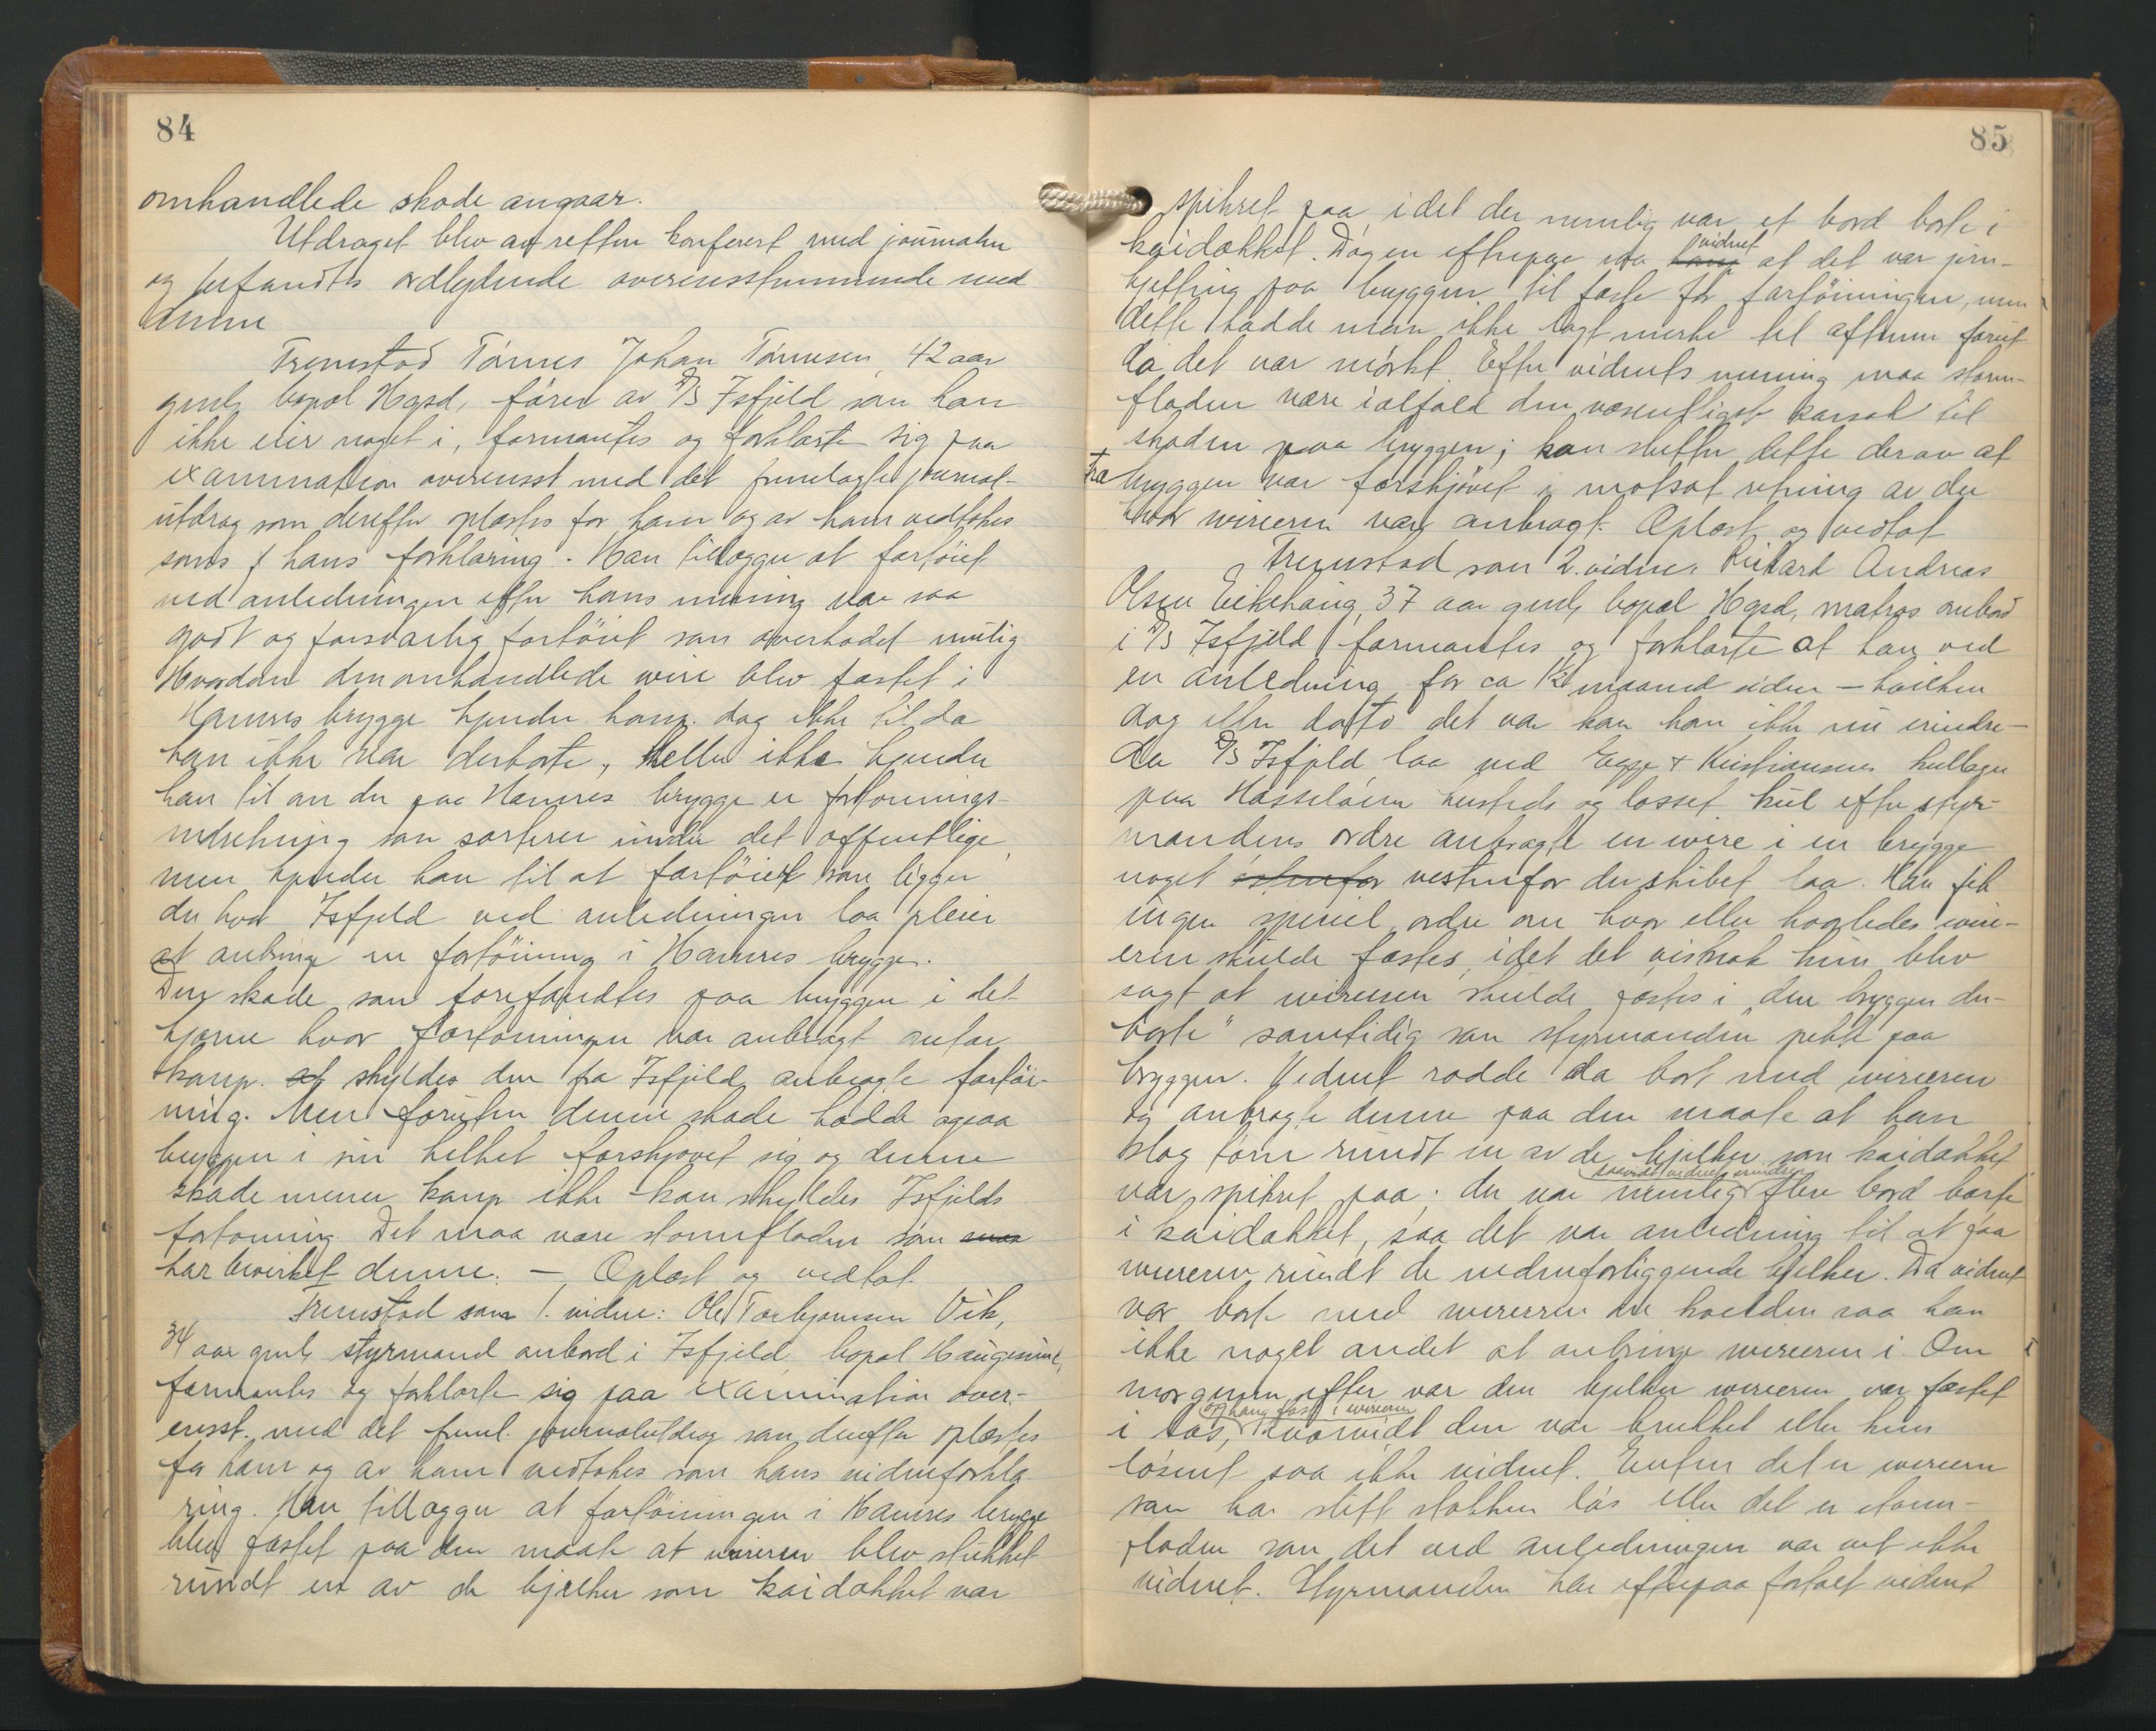 84
omhandlede skade angaar.
Utdraget blev av retten konferert med journalen
og befandtes ordlydende overensstemmende med
denne
Fremstod Tönnes Johan Tönnesen, 42 aar
gml, bopæl Hgsd, förer av D/S Isfjeld som han
ikke eier noget i, formantes og forklarte sig paa
examination overensst med det fremlagte journal-
utdrag som derefter oplæstes for ham og av ham vedtokes
som hans forklaring. Han tillægger at fartöiet
ved anledningen efter hans mening var saa
godt og forsvarlig fortöiet som overhodet mulig
Hvordan den omhandlede wire blev fæstet i
Hamres brygge kjender komp. dog ikke til da
han ikke var derborte, heller ikke kjender
han til om der paa Hamres brygge er fortöinings-
indretning som sorterer under det offentlige,
men kjender han til at fartöier som ligger
der hvor Isfjeld ved anledningen laa pleier
at anbringe en fortöining i Hamres brygge.
Den skade som forefandtes paa bryggen i det
hjörne hvor fortöiningen var anbragt antar
komp. at skyldes den fra Isfjeld anbragte fortöi-
ning. Men foruten denne skade hadde ogsaa
bryggen i sin helhet forskjövet sig og denne
skade mener komp ikke kan skyldes Isfjelds
fortöining. Det maa være stormfloden som maa
har bevirket denne. — Oplæst og vedtat.
Fremstod som 1. vidne: Ole Torbjörnsen Vik,
34 aar gml, styrmand ombord i Isfjeld, bopæl Haugesund,
formantes og forklarte sig paa examination over-
ensst. med det freml. journalutdrag som derefter oplæstes
for ham og av ham vedtokes som hans vidneforkla
ring. Han tillægger at fortöiningen i Hamres brygge
blev fæstet paa den maate at wireren blev stukket
rundt en av de bjelker som kaidækket var
85
spikret paa idet der nemlig var et bord borte i
kaidækket. Dagen efterpaa saa vidnet at det var jern-
kjetting paa bryggen til fæste for fortöiningen, men
dette hadde man ikke lagt merke til aftenen forut
da det var mörkt. Efter vidnets mening maa storm-
floden være ialfald den væsentligste aarsak til
skaden paa bryggen; han slutter dette derav at
bryggen var forskjövet i motsat retning av der
fra hvor wireren var anbragt. Oplæst og vedtat
Fremstod som 2. vidne: Rikard Andreas
Olsen Eikehaug, 37 aar gml, bopæl Hgsd, matros ombord
i D/S Isfjeld formantes og forklarte at han ved
en anledning for ca 1½ maaned siden — hvilken
dag eller dato det var kan han ikke nu erindre —
da D/S Isfjeld laa ved Egge & Kristiansens kullager
paa Hasselöen hersteds og losset kul efter styr-
mandens ordre anbragte en wire i en brygge
noget östenfor vestenfor der skibet laa. Han fik
ingen speciel ordre om hvor eller hvorledes wire-
eren skulde fæstes, idet det visnok kun blev
sagt at wireren skulde fæstes i "den bryggen der-
borte" samtidig som styrmanden pekte paa
bryggen. Vidnet rodde da bort med wireren
og anbragte denne paa den maate at han
slog törn rundt en av de bjelker som kaidækket
var spikret paa; der var nemlig saavidt vidnet erindrer flere bord borte
i kaidækket, saa det var anledning til at faa
wireren rundt de nedenforliggende bjelker. Da vidnet
var borte med wireren om kvelden saa han
ikke noget andet at anbringe wireren i. Om
morgenen efter var den bjelke wireren var fæstet
i lös, og hang fast i wireren hvorvidt den var brukket eller kun
lösnet saa ikke vidnet. Enten det er wireren
som har slitt stokken lös eller det er storm-
floden som det ved anledningen var vet ikke
vidnet. Styrmanden har efterpaa fortalt vidnet